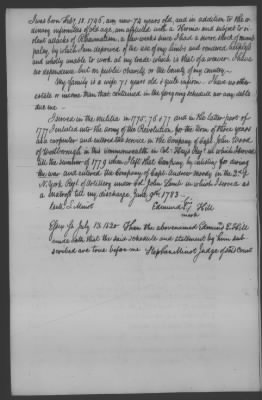 I was born Feb'y 18. 1746, am now 74 years old, and in addition to the or
dinary infirmities of old age, am afflicted with a and subject to vi
olent attacks of Rheumatism. a few weeks since I had a severe shock of numb
palsy, by which I am deprived of the use of my limbs and rendered helpless
and wholly unable to work at my trade which is that of a cooper. I have
no dependence but on public charity or the bounty of my country.—
My family is a wife 71 years old & quite infirm. I have no other
estate or income than that contained in the foregoing schedule nor any debts
due me.—
I served in the militia in 1775. 76 & 77. and in the latter part of
1777 I enlisted into the army of the Revolution, for the term of three years
as a carpenter and entered the service in the Company of Capt. John Wood
of in this Commonwealth in Col. Regt. in which I served
till the summer of 1779 when I left that Company by enlisting for during
the war and entered the Company of Capt. Andrew Moody in the 2d
N. York Regt. of Artillery under Col. John Lamb in which I served as
a till my discharge June 9th. 1783.—
Edmund Hill
mark
July 13. 1820. Then the abovenamed Edmund Hill
made oath that the said schedule and statement by him sub
scribed are true before me Stephen Minot Judge of Court